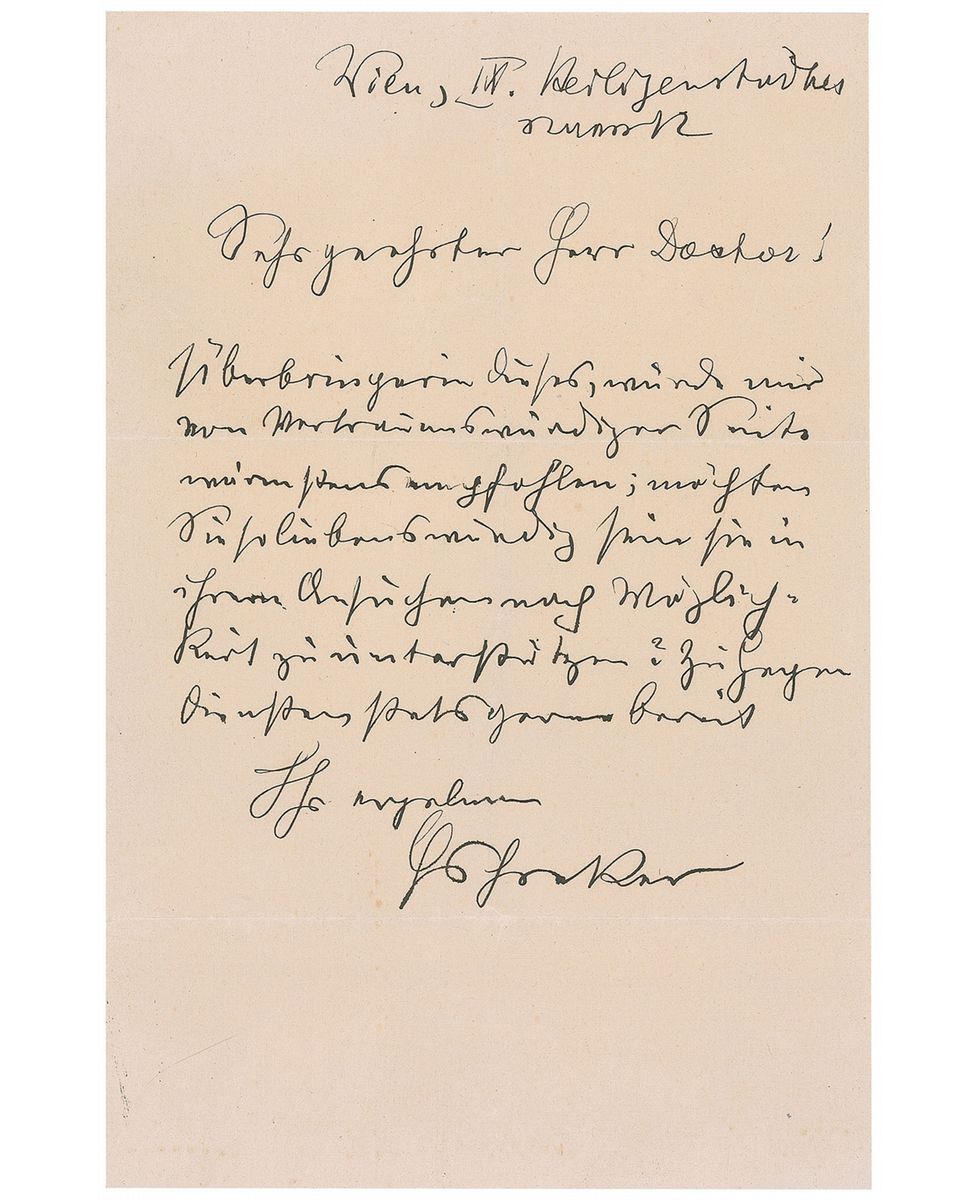 Wien, IX. Heiligenstädter
Sehr geehrter Herr Doctor!
Überbringerin dieses, wurde mir
von vertrauenswürdiger Seite
wärmstens empfohlen; möchten
Sie so liebenswürdig sein sie in
ihrem Ansuchen nach Möglich-
keit zu unterstützen? Zu Gegen
diensten stets gerne bereit
Ihr ergebener
Schreker